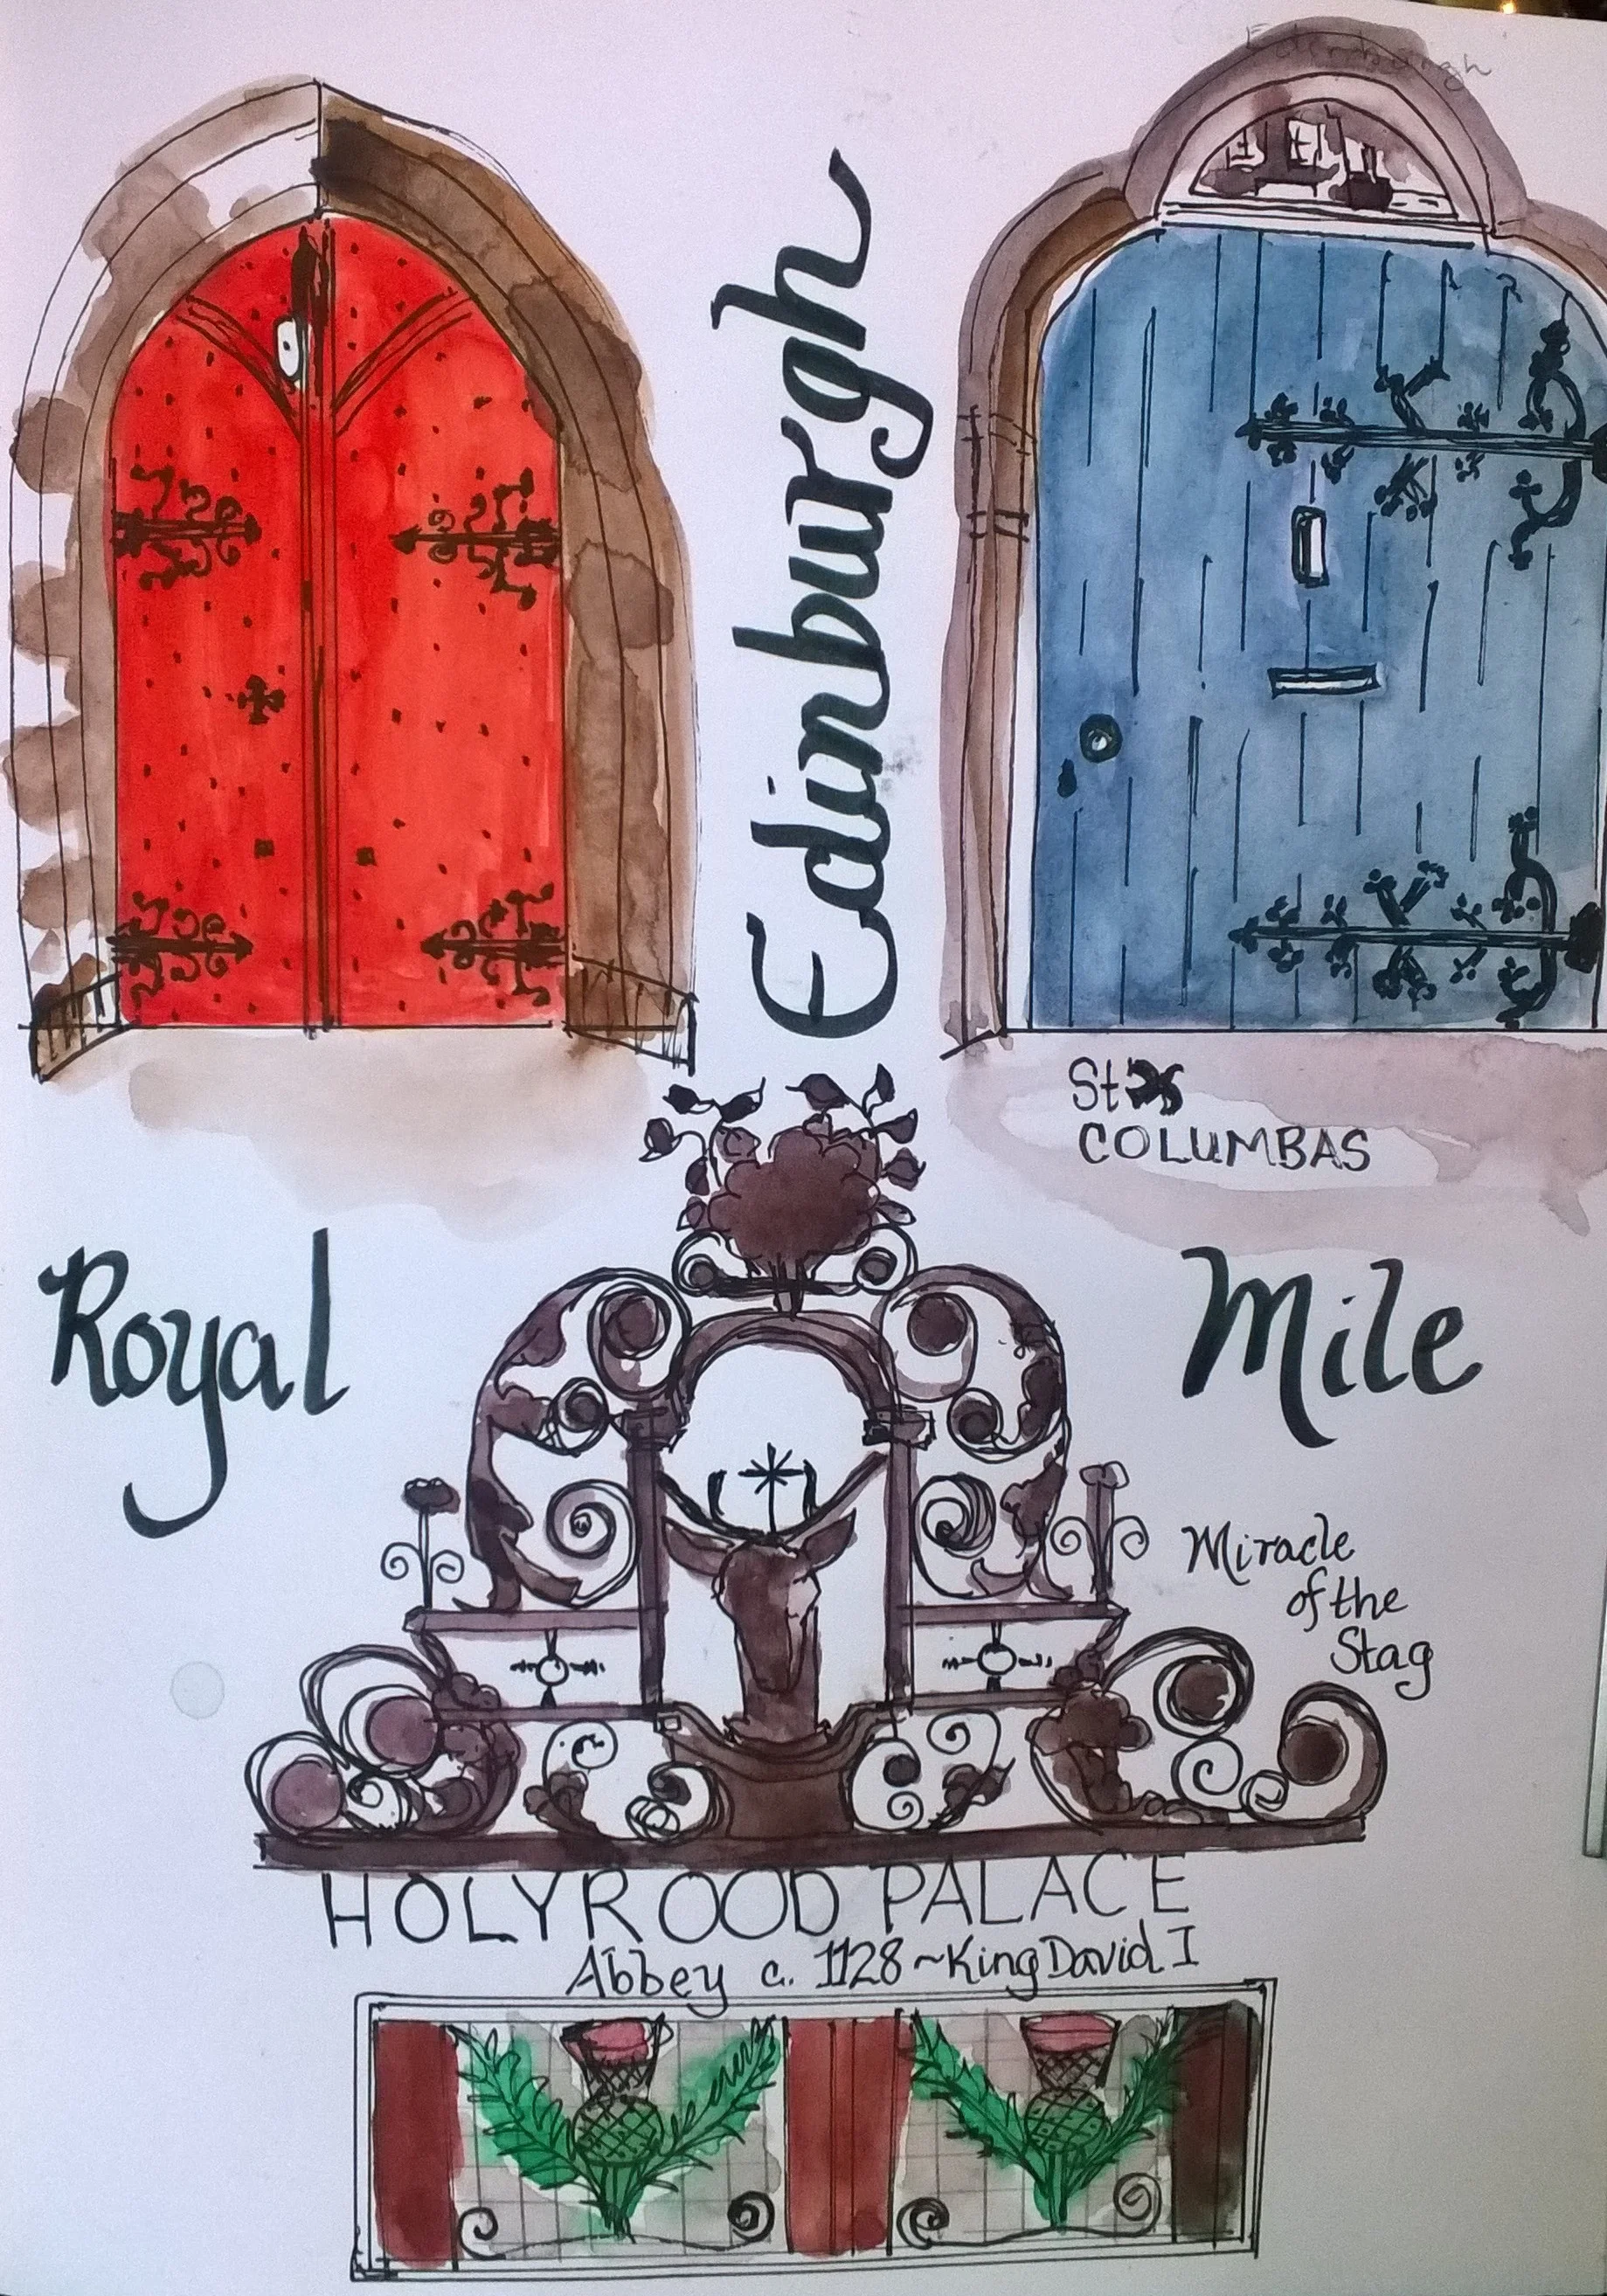 Edinburgh
Edinburgh
St
COLUMBAS
Royal Mile
Miracle
of the
Stag
HOLYROOD PALACE
Abbey c. 1128 ~ King David I